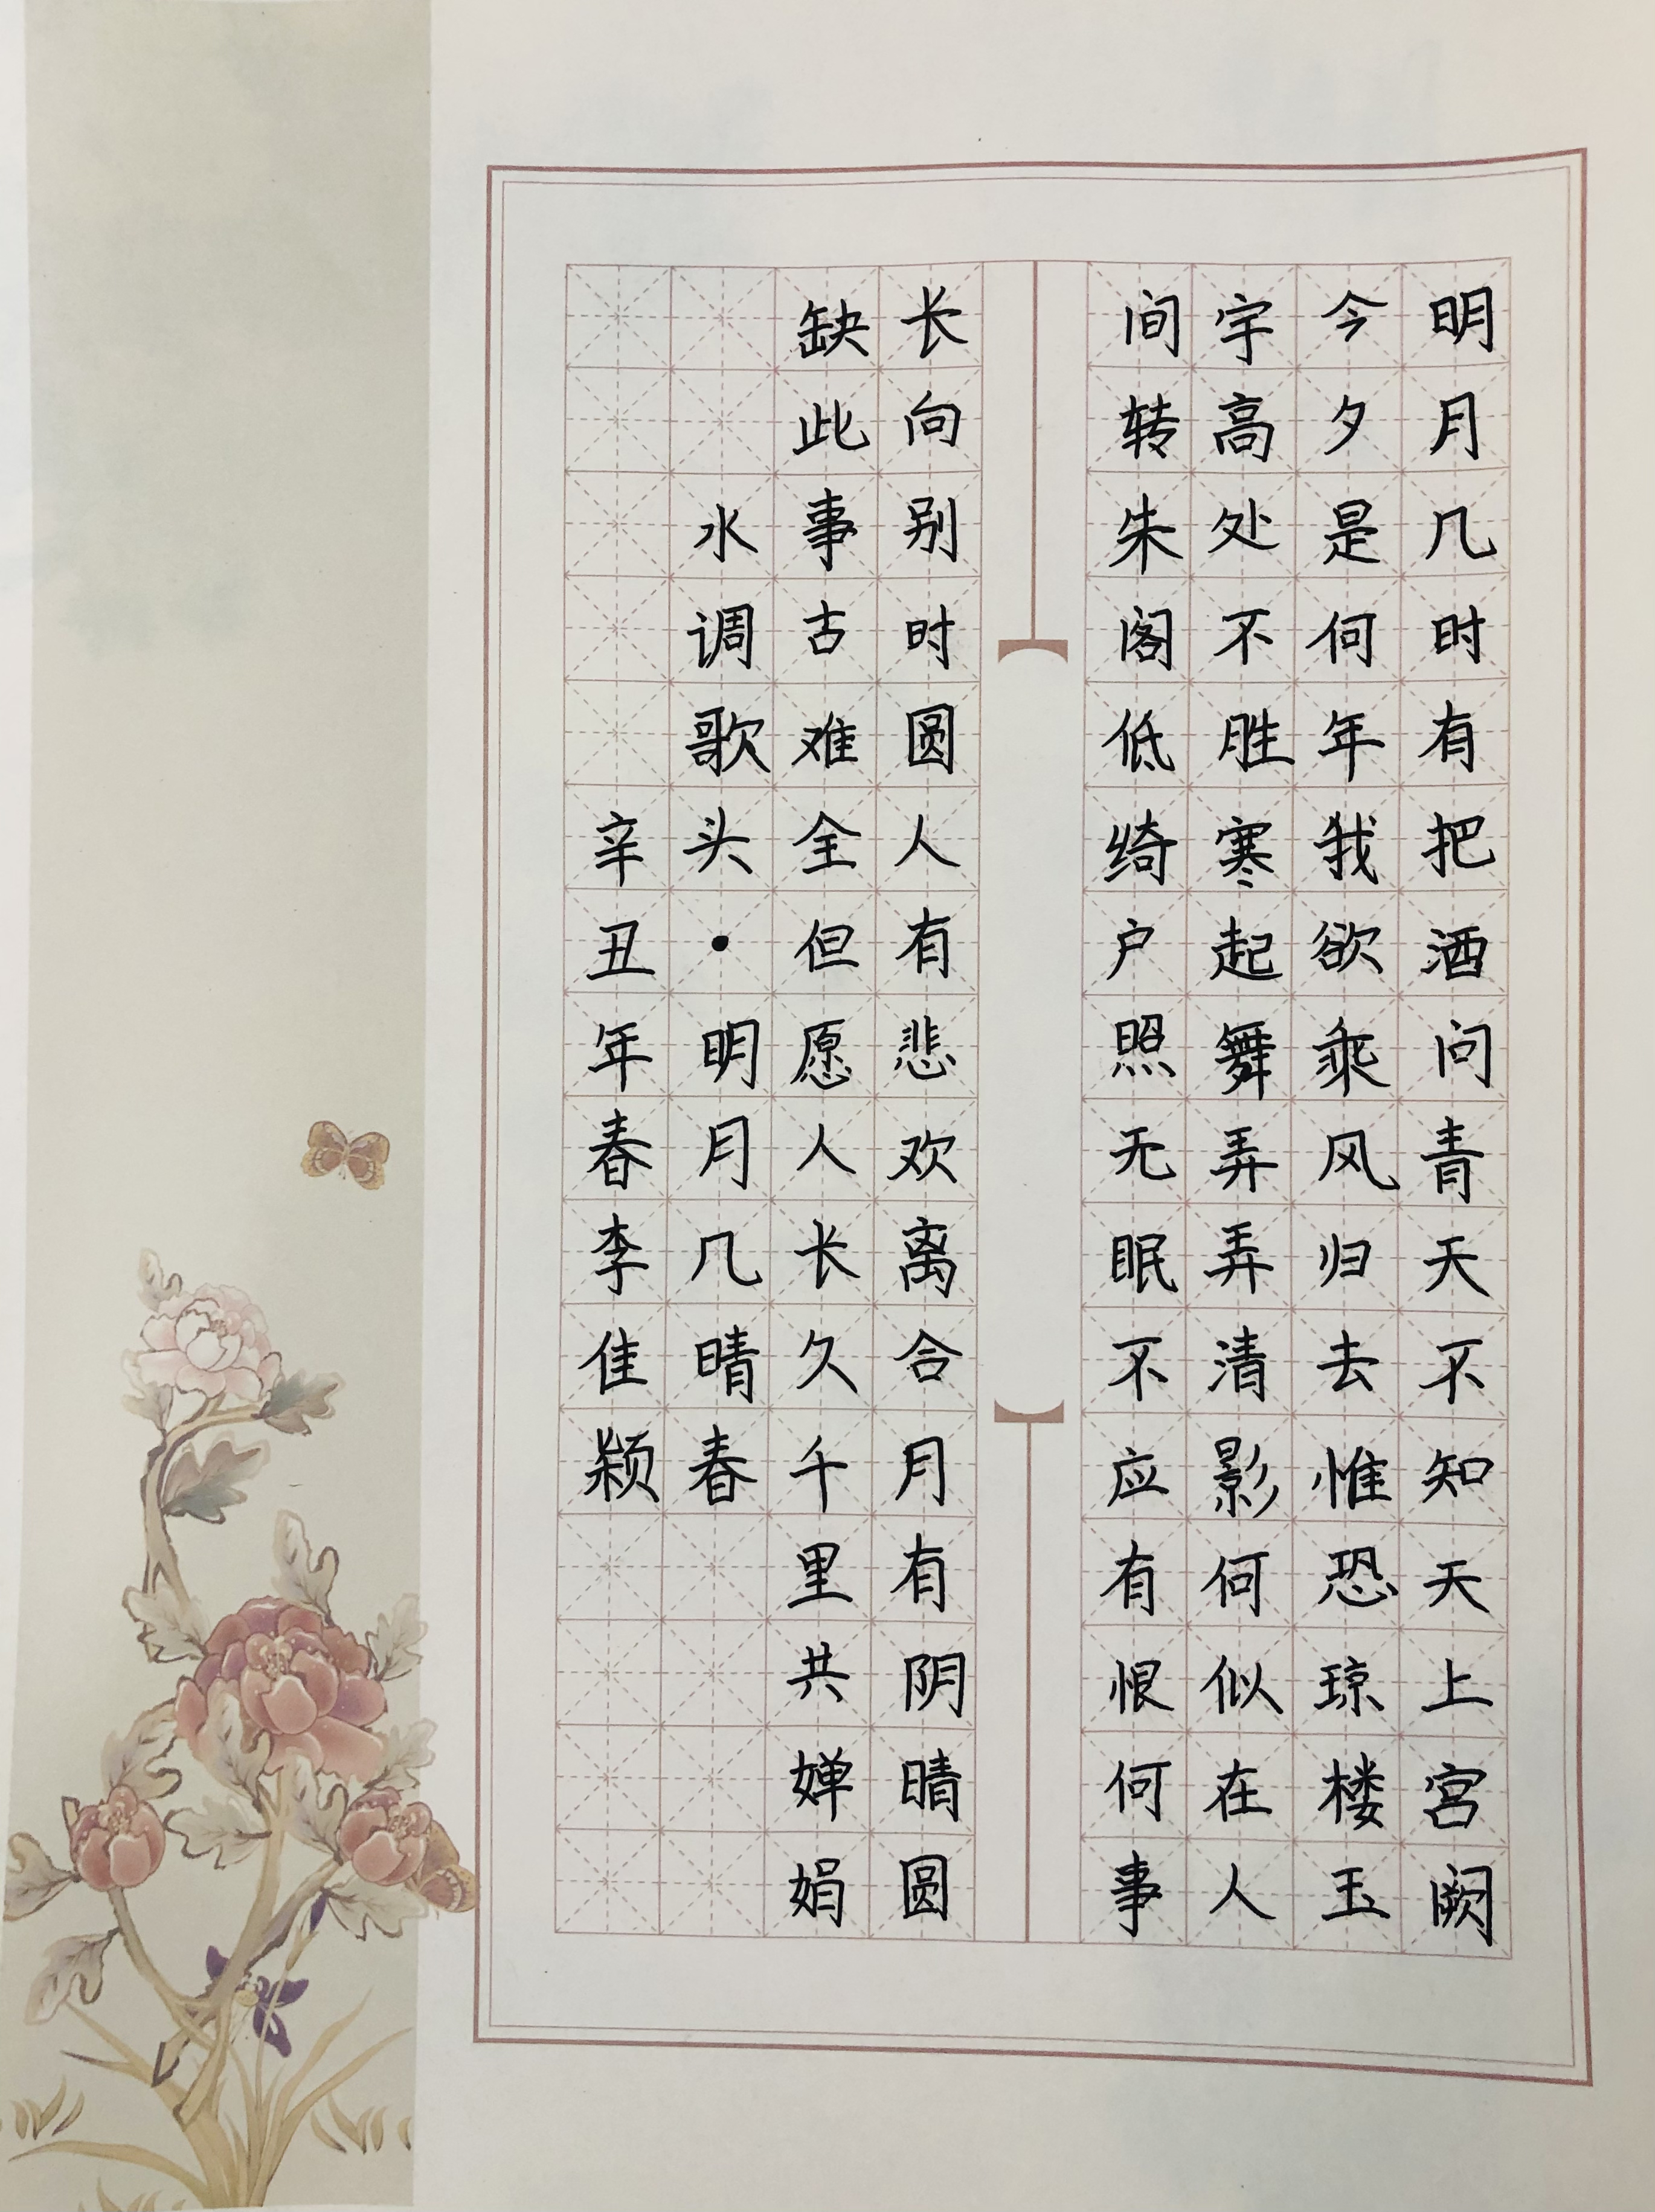 明月几时有把酒问青天不知天上宫阙
今夕是何年我欲乘风归去惟恐琼楼玉
宇高处不胜寒起舞弄弄清影何似在人
间转朱阁低绮户照无眠不应有恨何事
长向别时圆人有悲欢离合月有阴晴圆
缺此事古难全但愿人长久千里共婵娟
水调歌头·明月几晴春
辛丑年春李佳颖